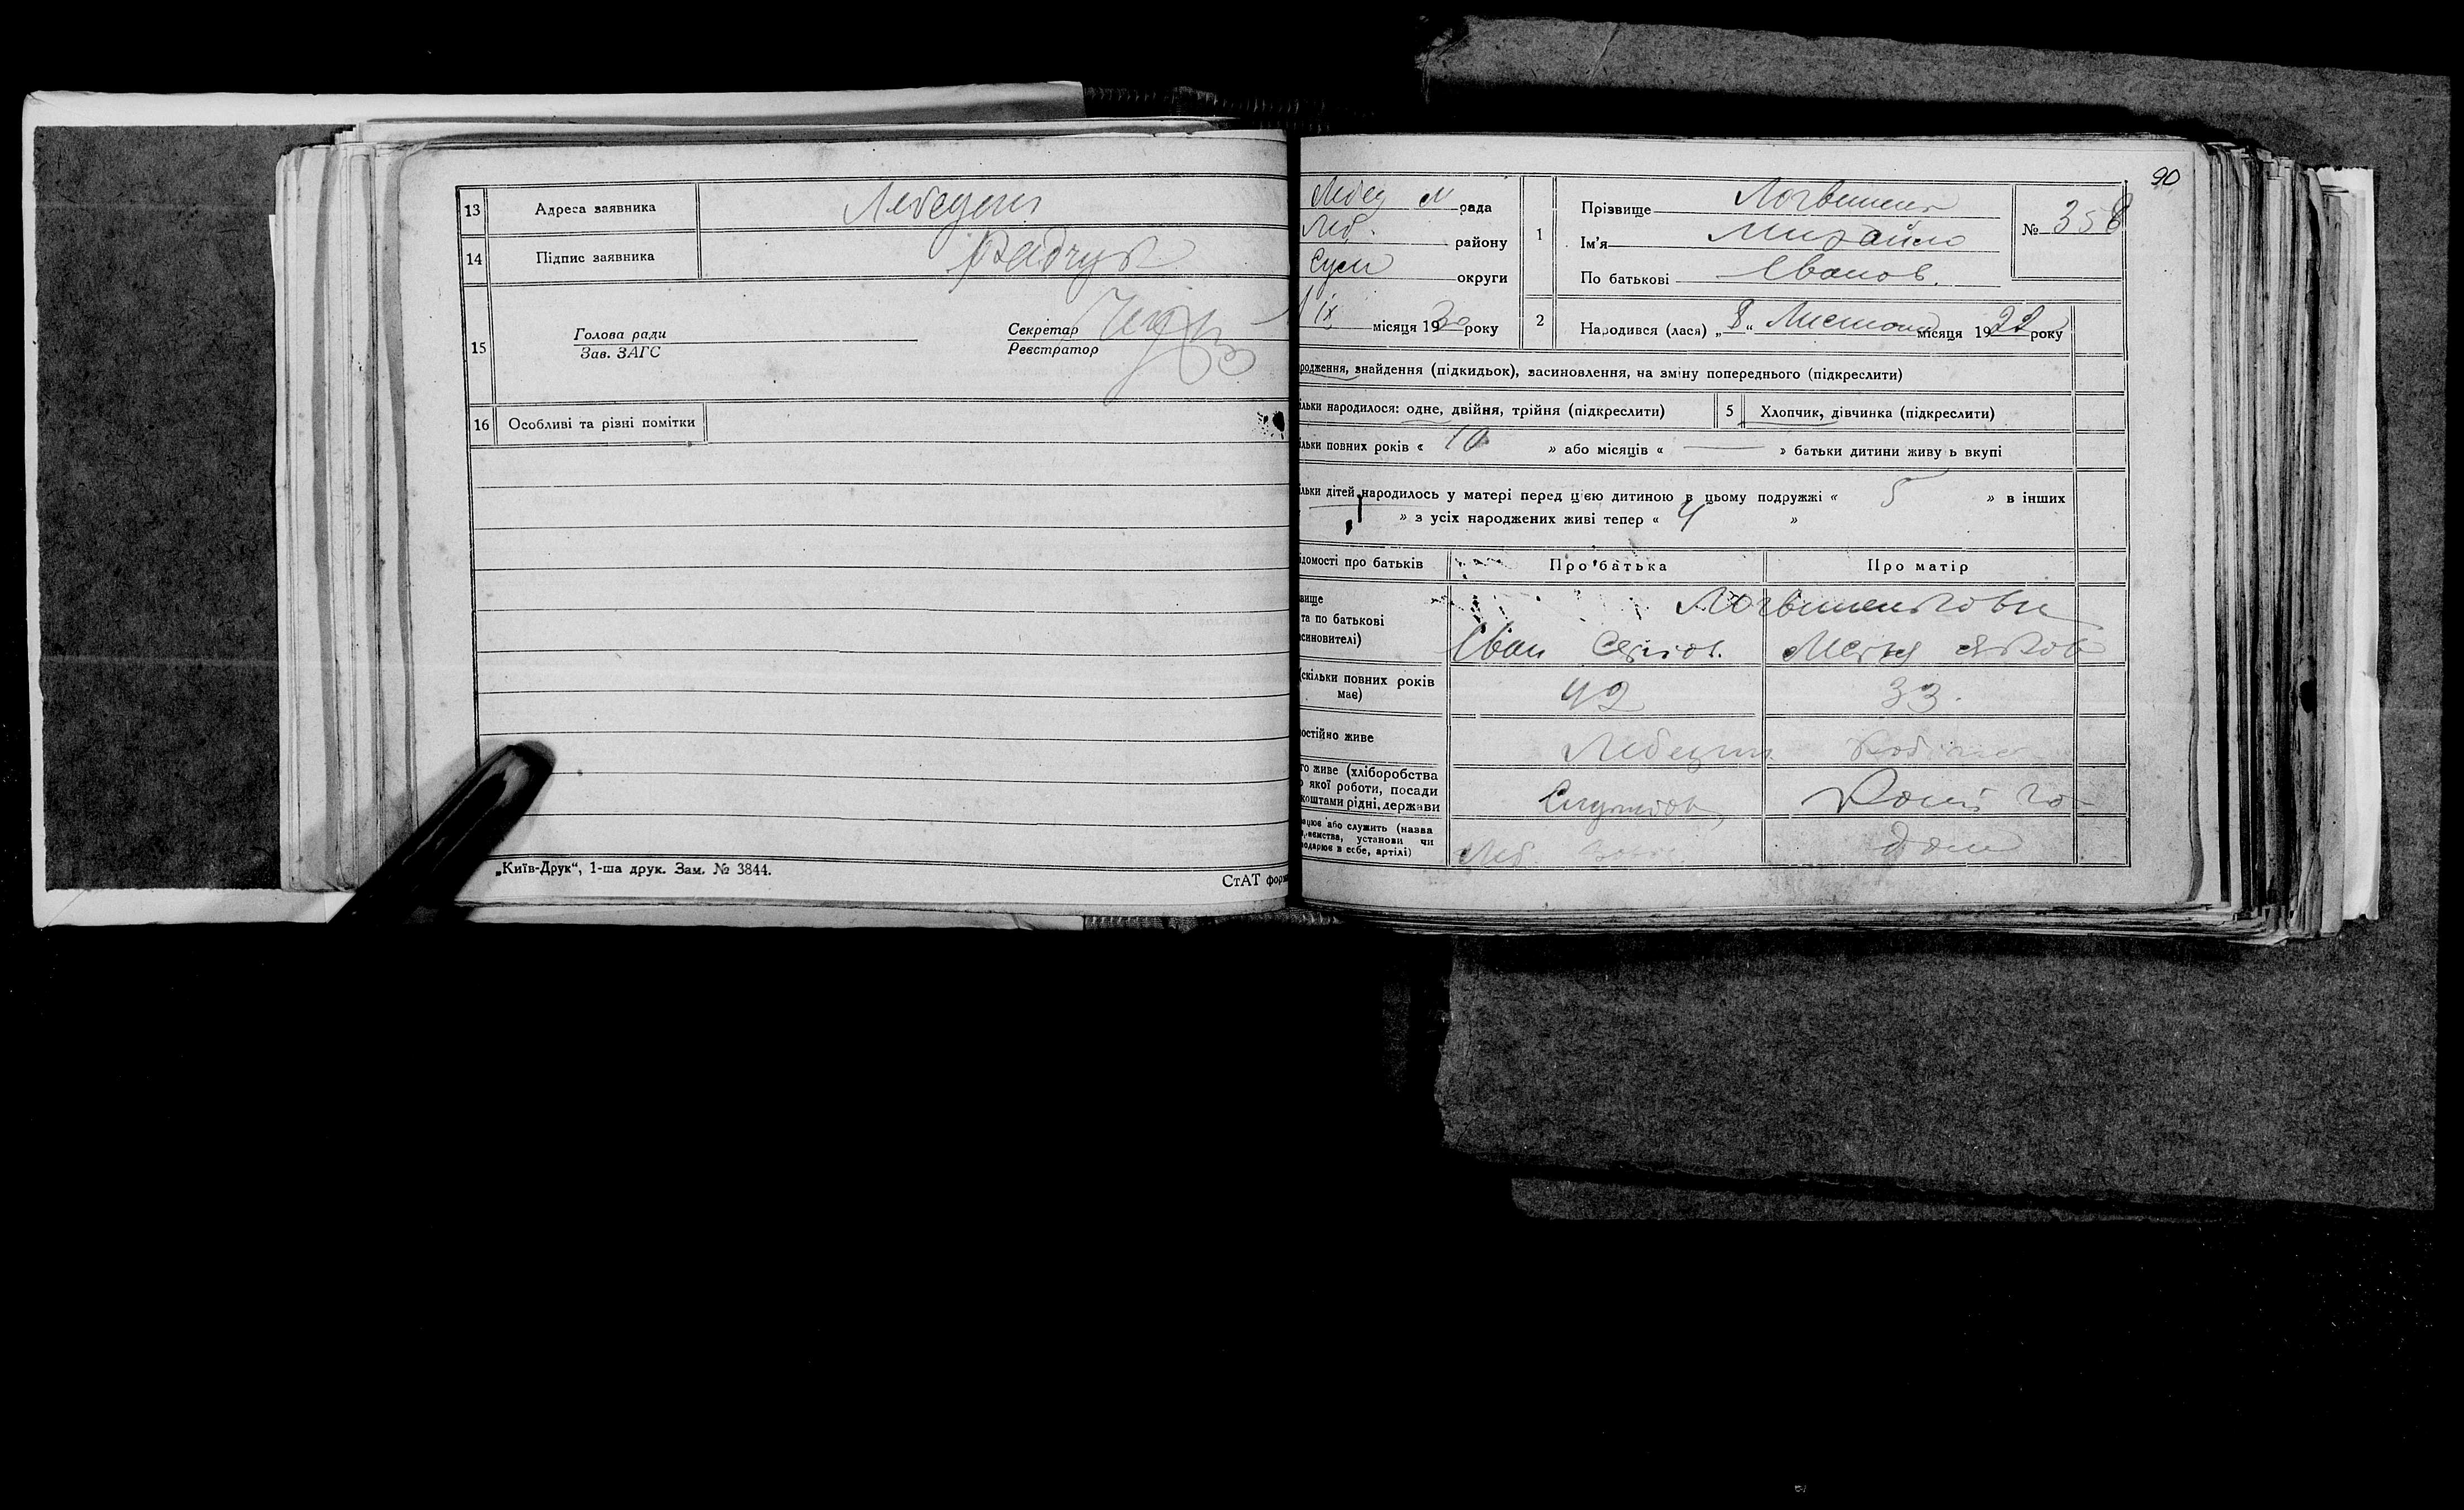 13 Адреса заявника Лебедин
14 Підпис заявника
15 Голова ради Секретар
Зав. ЗАГС Реєстратор
16 Особливі та різні помітки
„Київ-Друк“, 1-ша друк. Зам. № 3844.
СтАТ форм
90
Лебед рада
Леб. району
Сум округи
IX місяця 1930 року
1 Прізвище Логвинен
Ім'я Михайло
По батькові Іванов.
№ 358
2 Народився (лася) „8“ Листопад місяця 1922 року
родження, знайдення (підкидьок), засиновлення, на зміну попереднього (підкреслити)
ільки народилося: одне, двійня, трійня (підкреслити) 5 Хлопчик, дівчинка (підкреслити)
ільки повних років « 10 » або місяців « — » батьки дитини живу ь вкупі
ільки дітей народилось у матері перед цією дитиною в цьому подружжі « 5 » в інших
» з усіх народжених живі тепер « 4 »
ідомості про батьків Про батька Про матір
вище Логвиненкови
та по батькові
синовителі) Іван Яков
(скільки повних років 42 33.
має)
остійно живе Лебедин
го живе (хліборобства
о якої роботи, посади
коштами рідні, держави Службов,
ацює або служить (назва
д.иємства, установи чи
юдарює в себе, артілі) Леб.